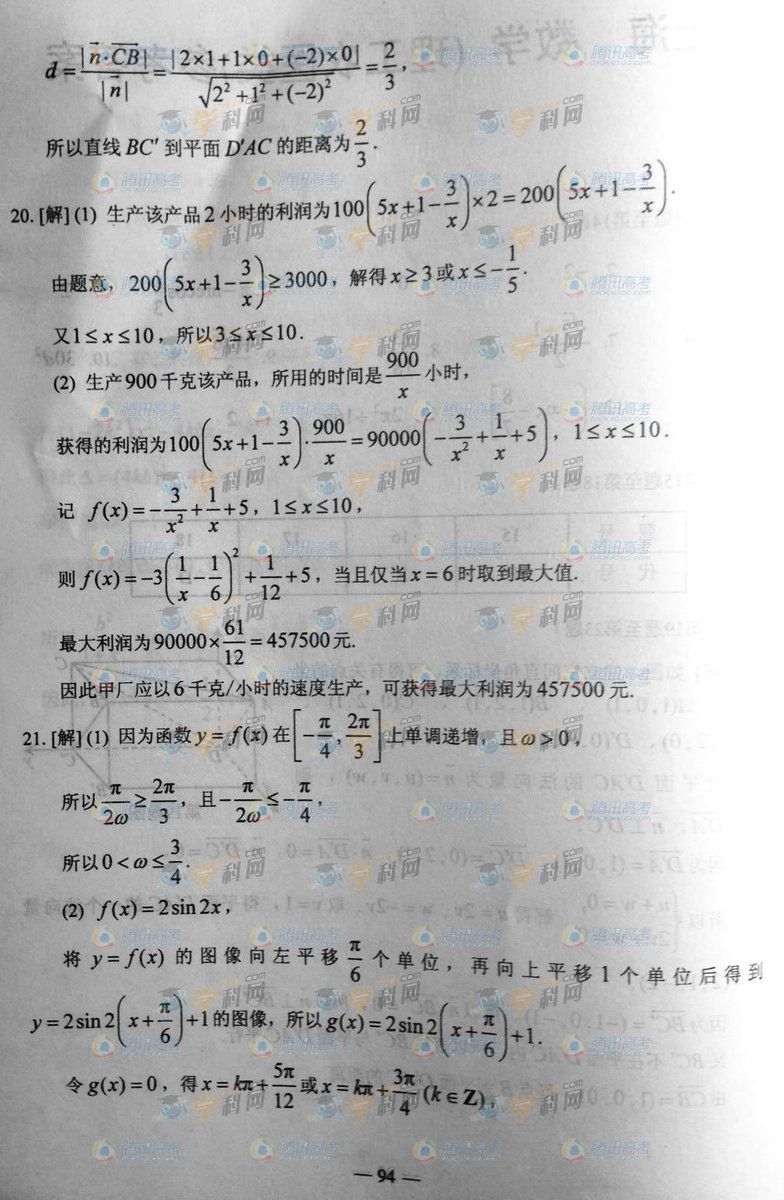 d = |n⃗·CB⃗| / |n⃗| = |2×1+1×0+(-2)×0| / √(2²+1²+(-2)²) = 2/3,
所以直线 BC′ 到平面 D′AC 的距离为 2/3.
20. [解] (1) 生产该产品 2 小时的利润为 100(5x+1-3/x)×2=200(5x+1-3/x).
由题意, 200(5x+1-3/x)≥3000, 解得 x≥3 或 x≤-1/5.
又 1≤x≤10, 所以 3≤x≤10.
(2) 生产 900 千克该产品, 所用的时间是 900/x 小时,
获得的利润为 100(5x+1-3/x)·900/x=90000(-3/x²+1/x+5), 1≤x≤10.
记 f(x)=-3/x²+1/x+5, 1≤x≤10,
则 f(x)=-3(1/x-1/6)²+1/12+5, 当且仅当 x=6 时取到最大值.
最大利润为 90000×61/12=457500 元.
因此甲厂应以 6 千克/小时的速度生产, 可获得最大利润为 457500 元.
21. [解] (1) 因为函数 y=f(x) 在 [-π/4, 2π/3] 上单调递增, 且 ω>0,
所以 π/2ω≥2π/3, 且 -π/2ω≤-π/4,
所以 0<ω≤3/4.
(2) f(x)=2sin2x,
将 y=f(x) 的图像向左平移 π/6 个单位, 再向上平移 1 个单位后得到
y=2sin2(x+π/6)+1 的图像, 所以 g(x)=2sin2(x+π/6)+1.
令 g(x)=0, 得 x=kπ+5π/12 或 x=kπ+3π/4 (k∈Z),
— 94 —